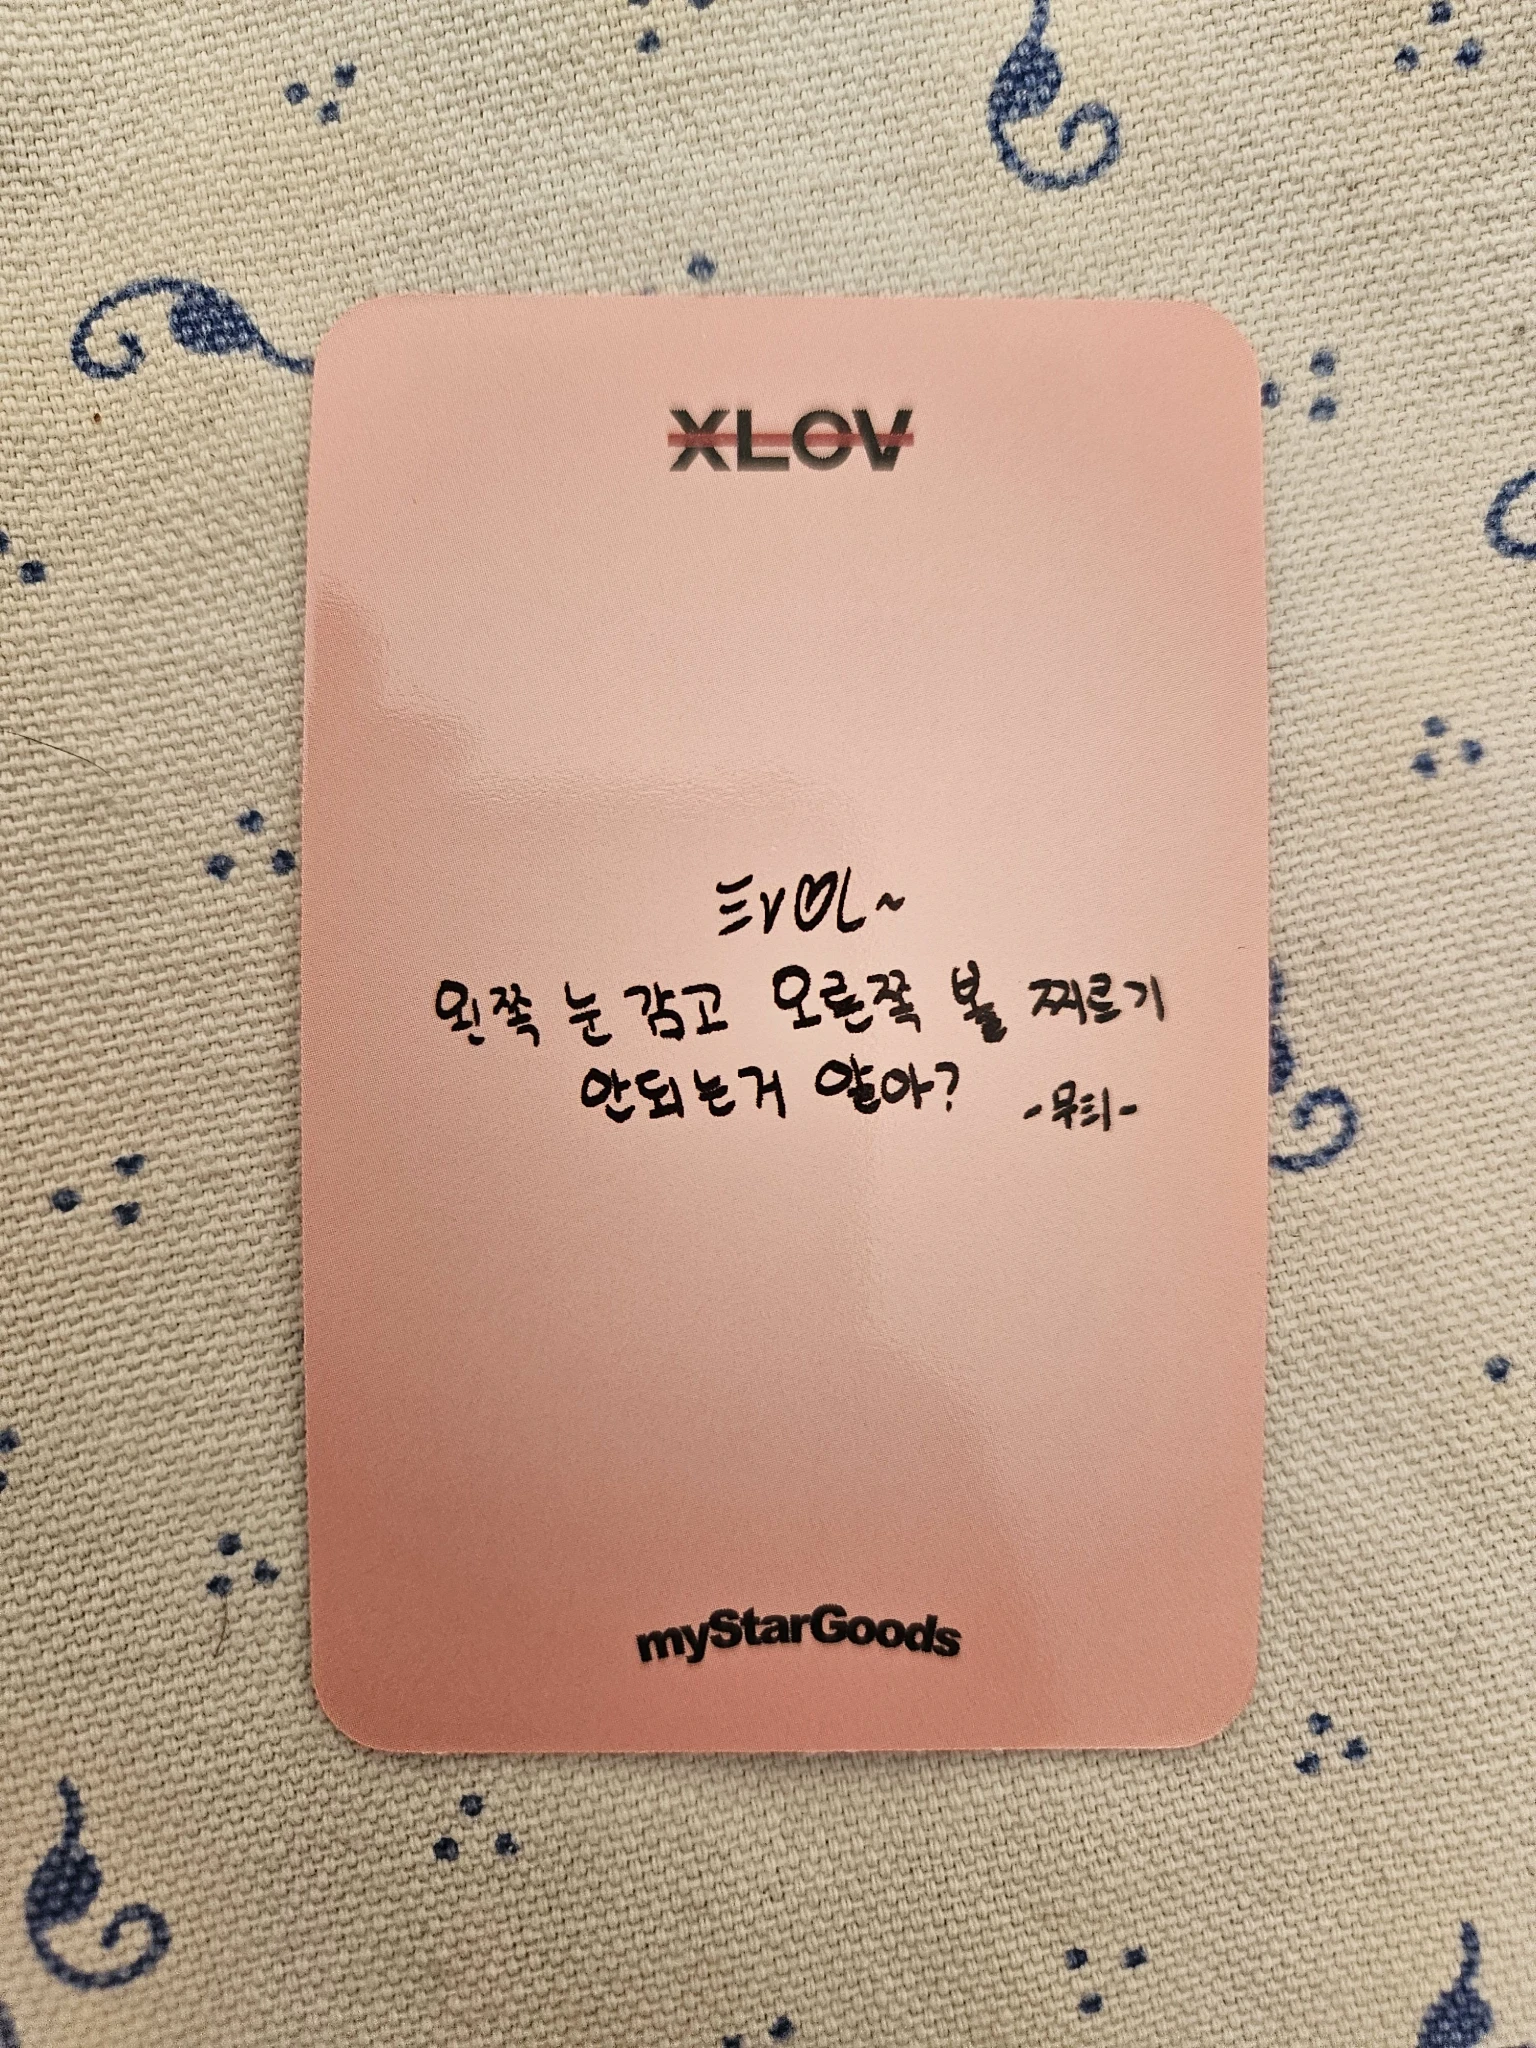 XLOV
EVOL~
왼쪽 눈 감고 오른쪽 볼 찌르기
안되는거 알아?
-무티-
myStarGoods